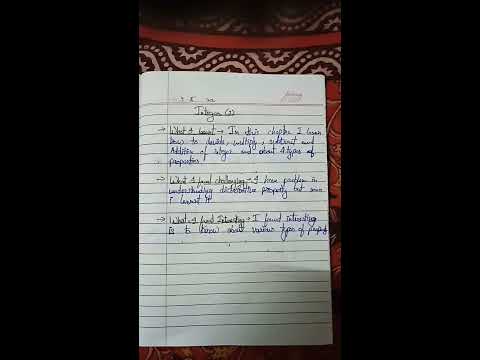 Integers (1)
→ What I learnt → In this chapter I learn
how to divide, multiply, subtract and
Addition of integers and about 4 types of
properties.
→ What I found challenging → I have problem in
understanding distributive property but soon
I learnt it
→ What I found Interesting → I found interesting
is to know about various types of property